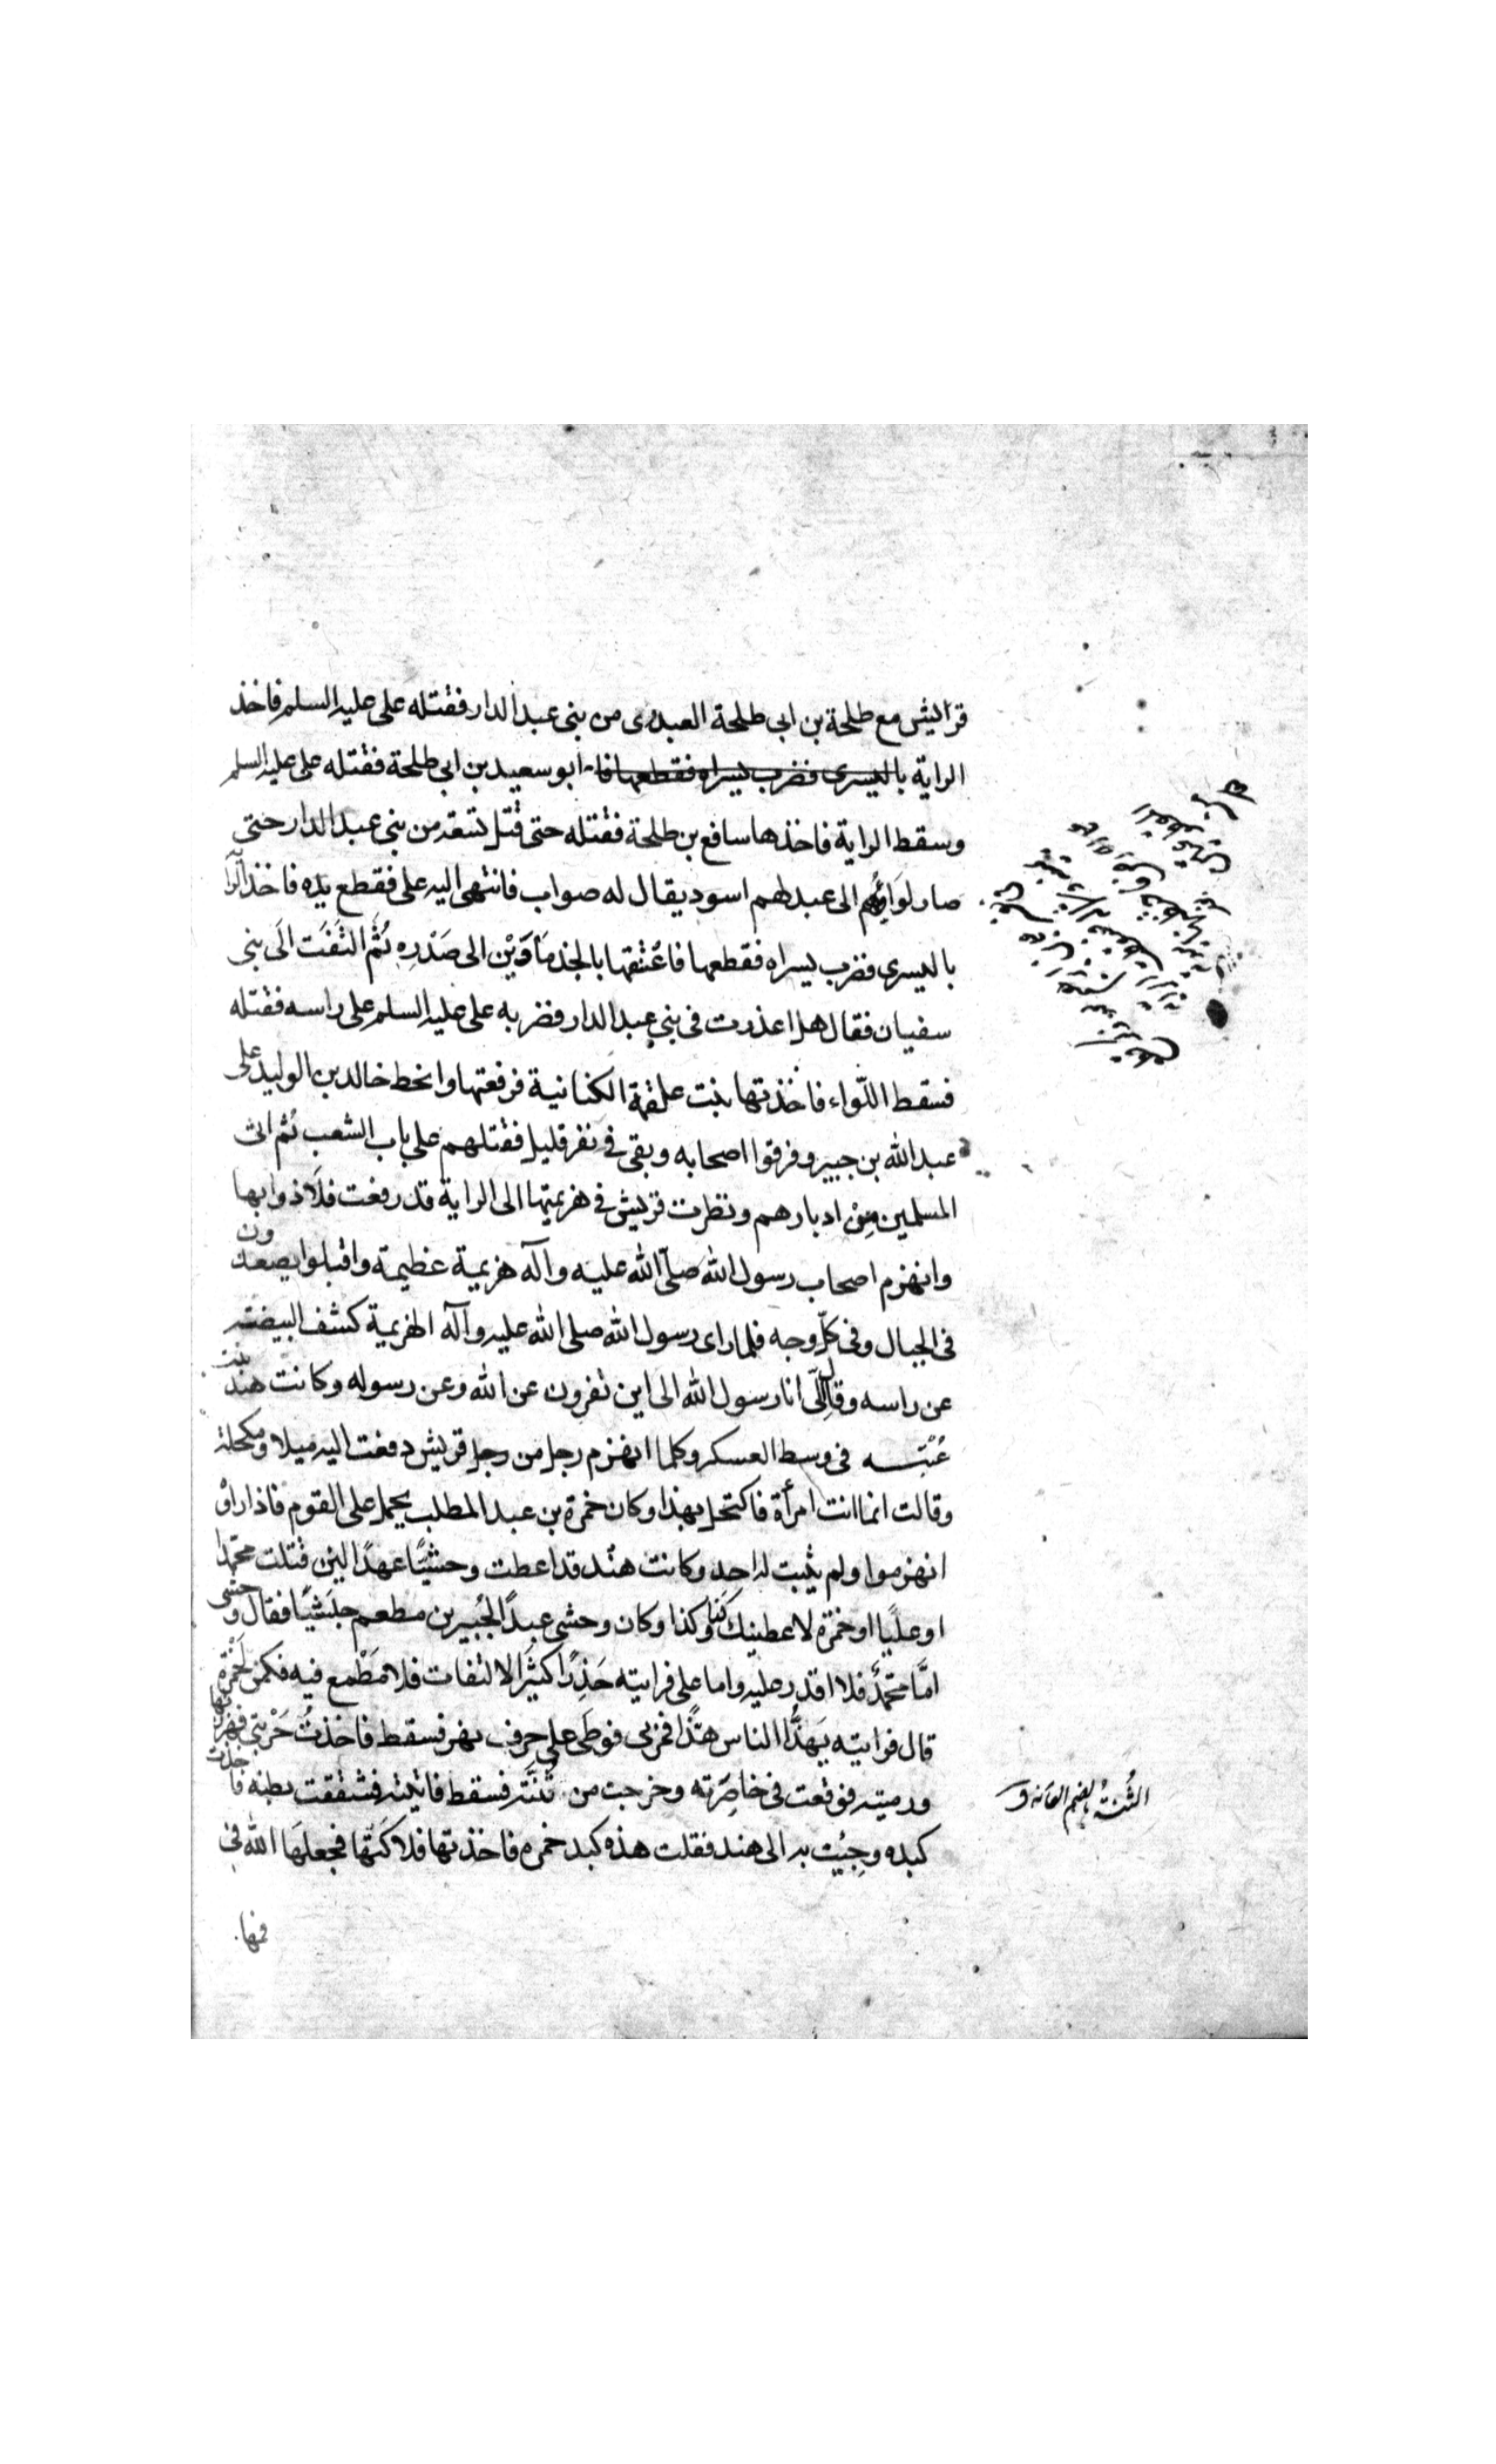 قرايش مع طلحة بن ابى طلحة العبدرى من بنى عبد الدار فقتله على عليه السلم فاخذ
الراية باليسرى فضرب يسراه فقطعها فا ابو سعيد بن ابى طلحة فقتله على عليه السلم
وسقط الراية فاخذها سافع بن طلحة فقتله حتى قتل تسعة من بنى عبد الدار حتى
صار لواؤهم الى عبد لهم اسود يقال له صواب فانتهى اليه على فقطع يده فاخذ الراية
باليسرى فضرب يسراه فقطعها فاعتنقها بالجذماوين الى صدره ثم التفت الى بنى
سفيان فقال هل اعذرت فى بنى عبد الدار فضربه على عليه السلم على راسه فقتله
فسقط اللواء فاخذتها بنت علقمة الكنانية فرفعتها وانحط خالد بن الوليد على
عبد الله بن جبير وفرقوا اصحابه وبقى فى نفر قليل فقتلهم على باب الشعب ثم اتى
المسلمين من ادبارهم ونظرت قريش فى هزيمتها الى الراية قد رفعت فلاذوا بها
وانهزم اصحاب رسول الله صلى الله عليه وآله هزيمة عظيمة واقبلوا يصعدون
فى الجبال وفى كلّ وجه فلما راى رسول الله صلى الله عليه وآله الهزيمة كشف البيضة
عن راسه وقال الىّ انا رسول الله الى اين تفرون عن الله وعن رسوله وكانت هند بنت
عُتبة فى وسط العسكر وكلما انهزم رجل من رجل قريش دفعت اليه ميلا ومكحلة
وقالت انما انت امرأة فاكتحل بهذا وكان حمزة بن عبد المطلب يحمل على القوم فاذا راوْ
انهزموا ولم يثبت له احد وكانت هند قد اعطت وحشيًا عهدًا لئن قتلت محمدا
او عليًا او حمزة لاعطينك كذا وكذا وكان وحشى عبدًا لجُبير بن مطعم حبشيًا فقال وحشى
امّا محمدٌ فلا اقدر عليه واما على فرايته حَذِرًا كثير الالتفات فلا مَطْمع فيه فكمن لحَمْزة
قال فرايته يَهدُّ الناس هدًّا فمرّ بى فوطَى على جرف نهر فسقط فاخذتُ حَرْبتى فهززتها
ورميته فوقعت فى خاصِرته وخرجت من ثُنَّته فسقط فاتيته فشققت بطنه فاخذت
كبده وجِئيت به الى هند فقلت هذه كبد حمزه فاخذتها فلاكَتْها فجعلَها الله فى
فيها
الثُنةُ بالضم العانة ق